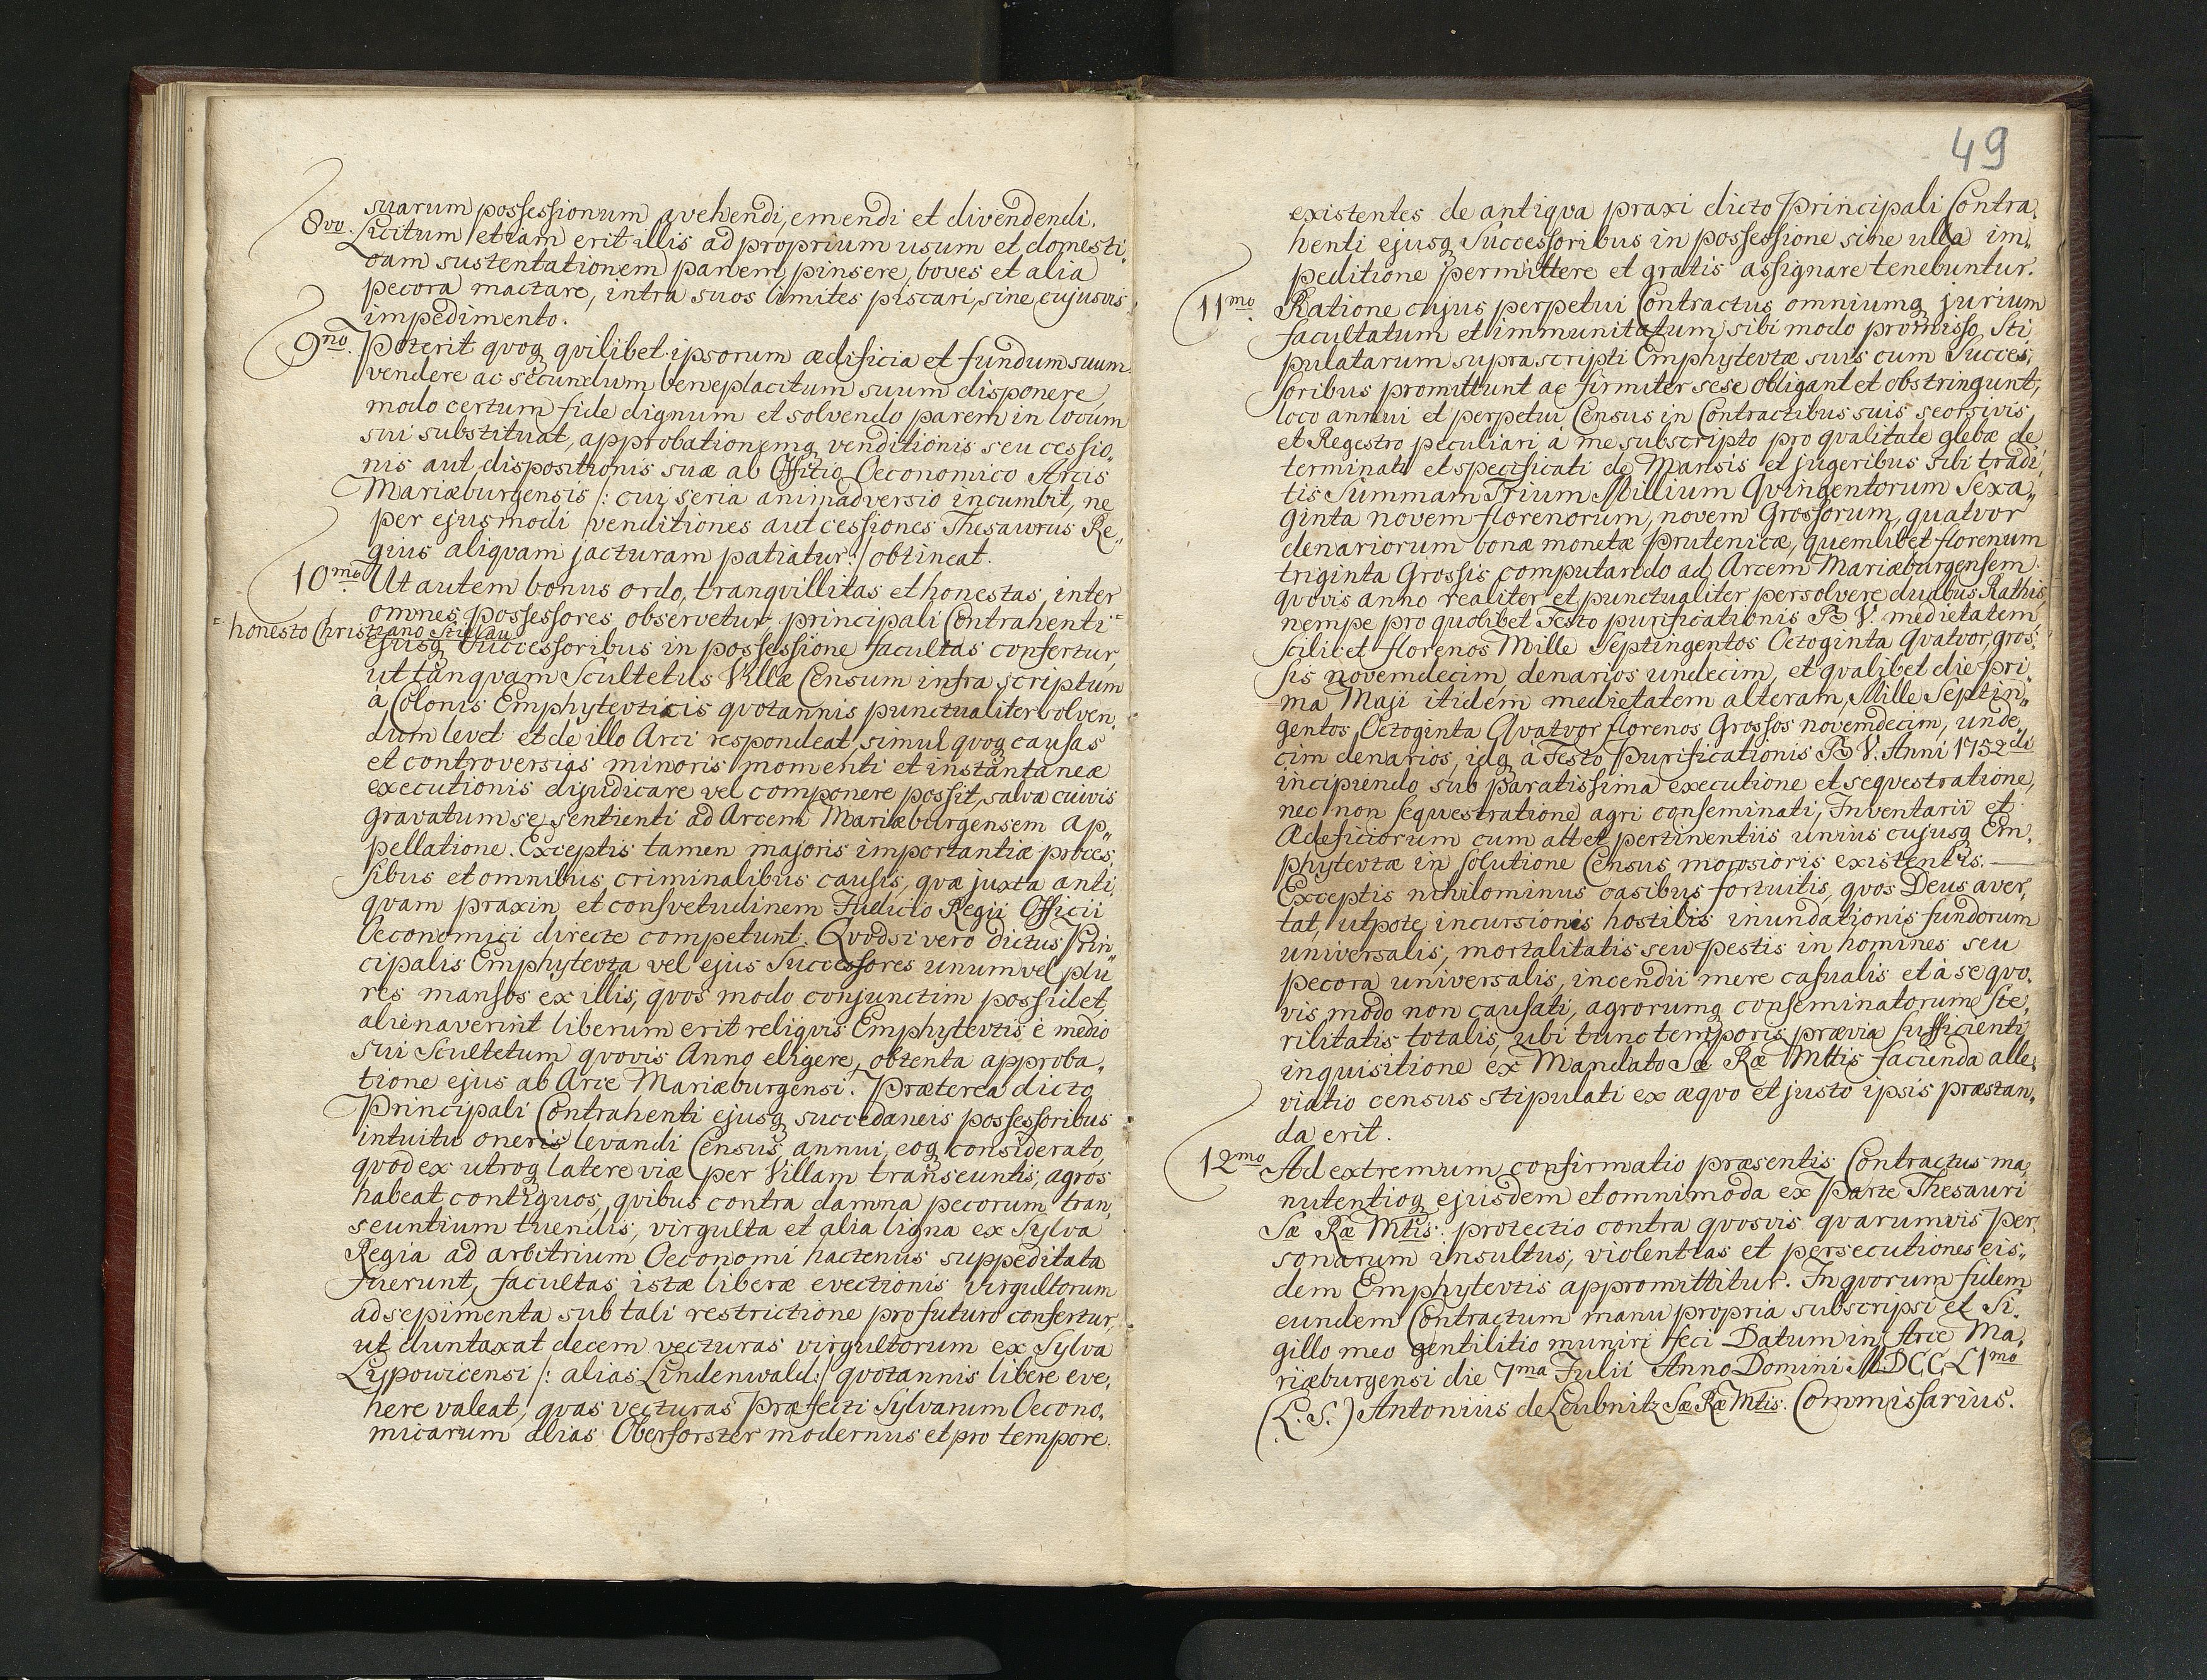 suarum possessionum avehendi, emendi et divendendi.
8vo. Licitum etiam erit illis ad proprium usum et domesti,
cam sustentationem panem pinsere, boves et alia
pecora mactare, intra suos limites piscari, sine cujusvis
impedimento.
9no. Poterit quoq qvilibet ipsorum ædificia et fundum suum
vendere ac secundum beneplacitum suum disponere
modo certum fide dignum et solvendo parem in locum
sui substituat, approbationemq venditionis seu cessio,
nis aut dispositionis suæ ab Officio Oeconomico Arcis
Mariæburgensis /: cui seria animadversio incumbit, ne
per ejusmodi venditiones aut cessiones Thesaurus Re,,
gius aliqvam jacturam patiatur :/ obtineat.
10mo. Ut autem bonus ordo, tranqvillitas et honestas inter
omnes possessores observetur, principali Contrahenti =
= honesto Christiano
ejusq Successoribus in possessione facultas confertur,
ut tanqvam Scultetus Villæ Censum infra scriptum
à Colonis Emphytevticis qvotannis punctualiter solven,
dum levet et de illo Arci respondeat, simul qvoq causas
et controversias minoris momenti et instantaneæ
executionis dijudicare vel componere possit, salva cuivis
gravatum se sentienti ad Arcem Mariæburgensem Ap,,
pellatione. Exceptis tamen majoris importantiæ proces,
sibus et omnibus criminalibus causis, qvæ juxta anti,
qvam praxin et consvetudinem Judicio Regii Officii
Oeconomici directe competunt. Qvodsi vero dictus Prin,,
cipalis Emphytevta vel ejus Successores unum vel plu
res mansos ex illis, qvos modo conjunctim possidet,
alienaverint liberum erit reliqvis Emphytevtis è medio
sui Scultetum qvovis Anno eligere, obtenta approba,,
tione ejus ab Arce Mariæburgensi. Præterea dicto
Principali Contrahenti ejusq succedaneis possessoribus
intuitu oneris levandi Census annui, eoq considerato,
qvod ex utroq latere viæ per Villam transeuntis, agros
habeat contiguos, qvibus contra damna pecorum tran,
seuntium tuendis, virgulta et alia ligna ex Sylva
Regia ad arbitrium Oeconomi hactenus suppeditata
fuerunt, facultas istæ liberæ evectionis virgultorum
ad sepimenta sub tali restrictione pro futuro confertur,
ut duntaxat decem vecturas virgultorum ex Sylva
Lypowicensi /: alias Lindenwald :/ qvotannis libere eve,
here valeat, qvas vecturas Præfecti Sylvarum Oecono,
micarum alias Oberforster modernus et pro tempore
49
existentes de antiqva praxi dicto Principali Contra,
henti ejusq Successoribus in possessione sine ulla im,
peditione permittere et gratis assignare tenebuntur.
11mo. Ratione cujus perpetui Contractus omniumq jurium
facultatum et immunitatum sibi modo promisso, Sti
pulatarum suprascripti Emphytevtæ suis cum Succes,
soribus promittunt ac firmiter sese obligant et obstringunt,
loco annui et perpetui Census in Contractibus suis seorsivis
et Regestro peculiari à me subscripto pro qvalitate glebæ de
terminati et specificati de Mansis et jugeribus sibi tradi,
tis Summam Trium Millium Qvingentorum Sexa,,
ginta novem florenorum, novem Grossorum, quatvor
denariorum bonæ monetæ Prutenicæ, quemlibet florenum
triginta Grossis computando ad Arcem Mariæburgensem
qvovis anno realiter et punctualiter persolvere duabus Rathis
nempe pro quolibet Festo purificationis B V. medietatem
scilicet florenos Mille Septingentos Octoginta Qvatvor, gros,
sis novemdecim, denarios undecim, et qvalibet die Pri
ma Maji itidem medietatem alteram, Mille Septin,,
gentos Octoginta Qvatvor florenos Grossos novemdecim, unde,,
cim denarios, idq à Festo Purificationis B V. Anni 1752di
incipiendo sub paratissima executione et seqvestratione,
nec non sequestratione agri conseminati, Inventarii et
Adeficiorum cum att et pertinentiis unius cujusq Em,
phytevtæ in solutione Census morosioris existentis.
Exceptis nihilominus casibus fortuitis, qvos Deus aver,
tat, utpote incursionis hostilis inundationis fundorum
universalis, mortalitatis seu pestis in homines seu
pecora universalis, incendii mere casualis et à se qvo,
vis modo non causati, agrorumq conseminatorum ste,
rilitatis totalis, ubi tunc temporis prævia sufficienti
inquisitione ex Mandato Sæ Ræ Mttis facienda alle,
viatio census stipulati ex æqvo et justo ipsis præstan,
da erit.
12mo Ad extremum confirmatio præsentis Contractus ma,
nutentioq ejusdem et omnimoda ex Parte Thesauri
Sæ Ræ Mtis: protectio contra qvosvis qvarumvis Per
sonarum insultus, violentias et persecutiones eis,,
dem Emphytevtis appromittitur. In qvorum fidem
eundem Contractum manu propria subscripsi et Si,
gillo meo gentilitio muniri feci Datum in Arce Ma,
riæburgensi die 7ma Julii Anno Domini MDCCL1mo
(L. S.) Antonius de Leubnitz Sæ Ræ Mtis. Commissarius.